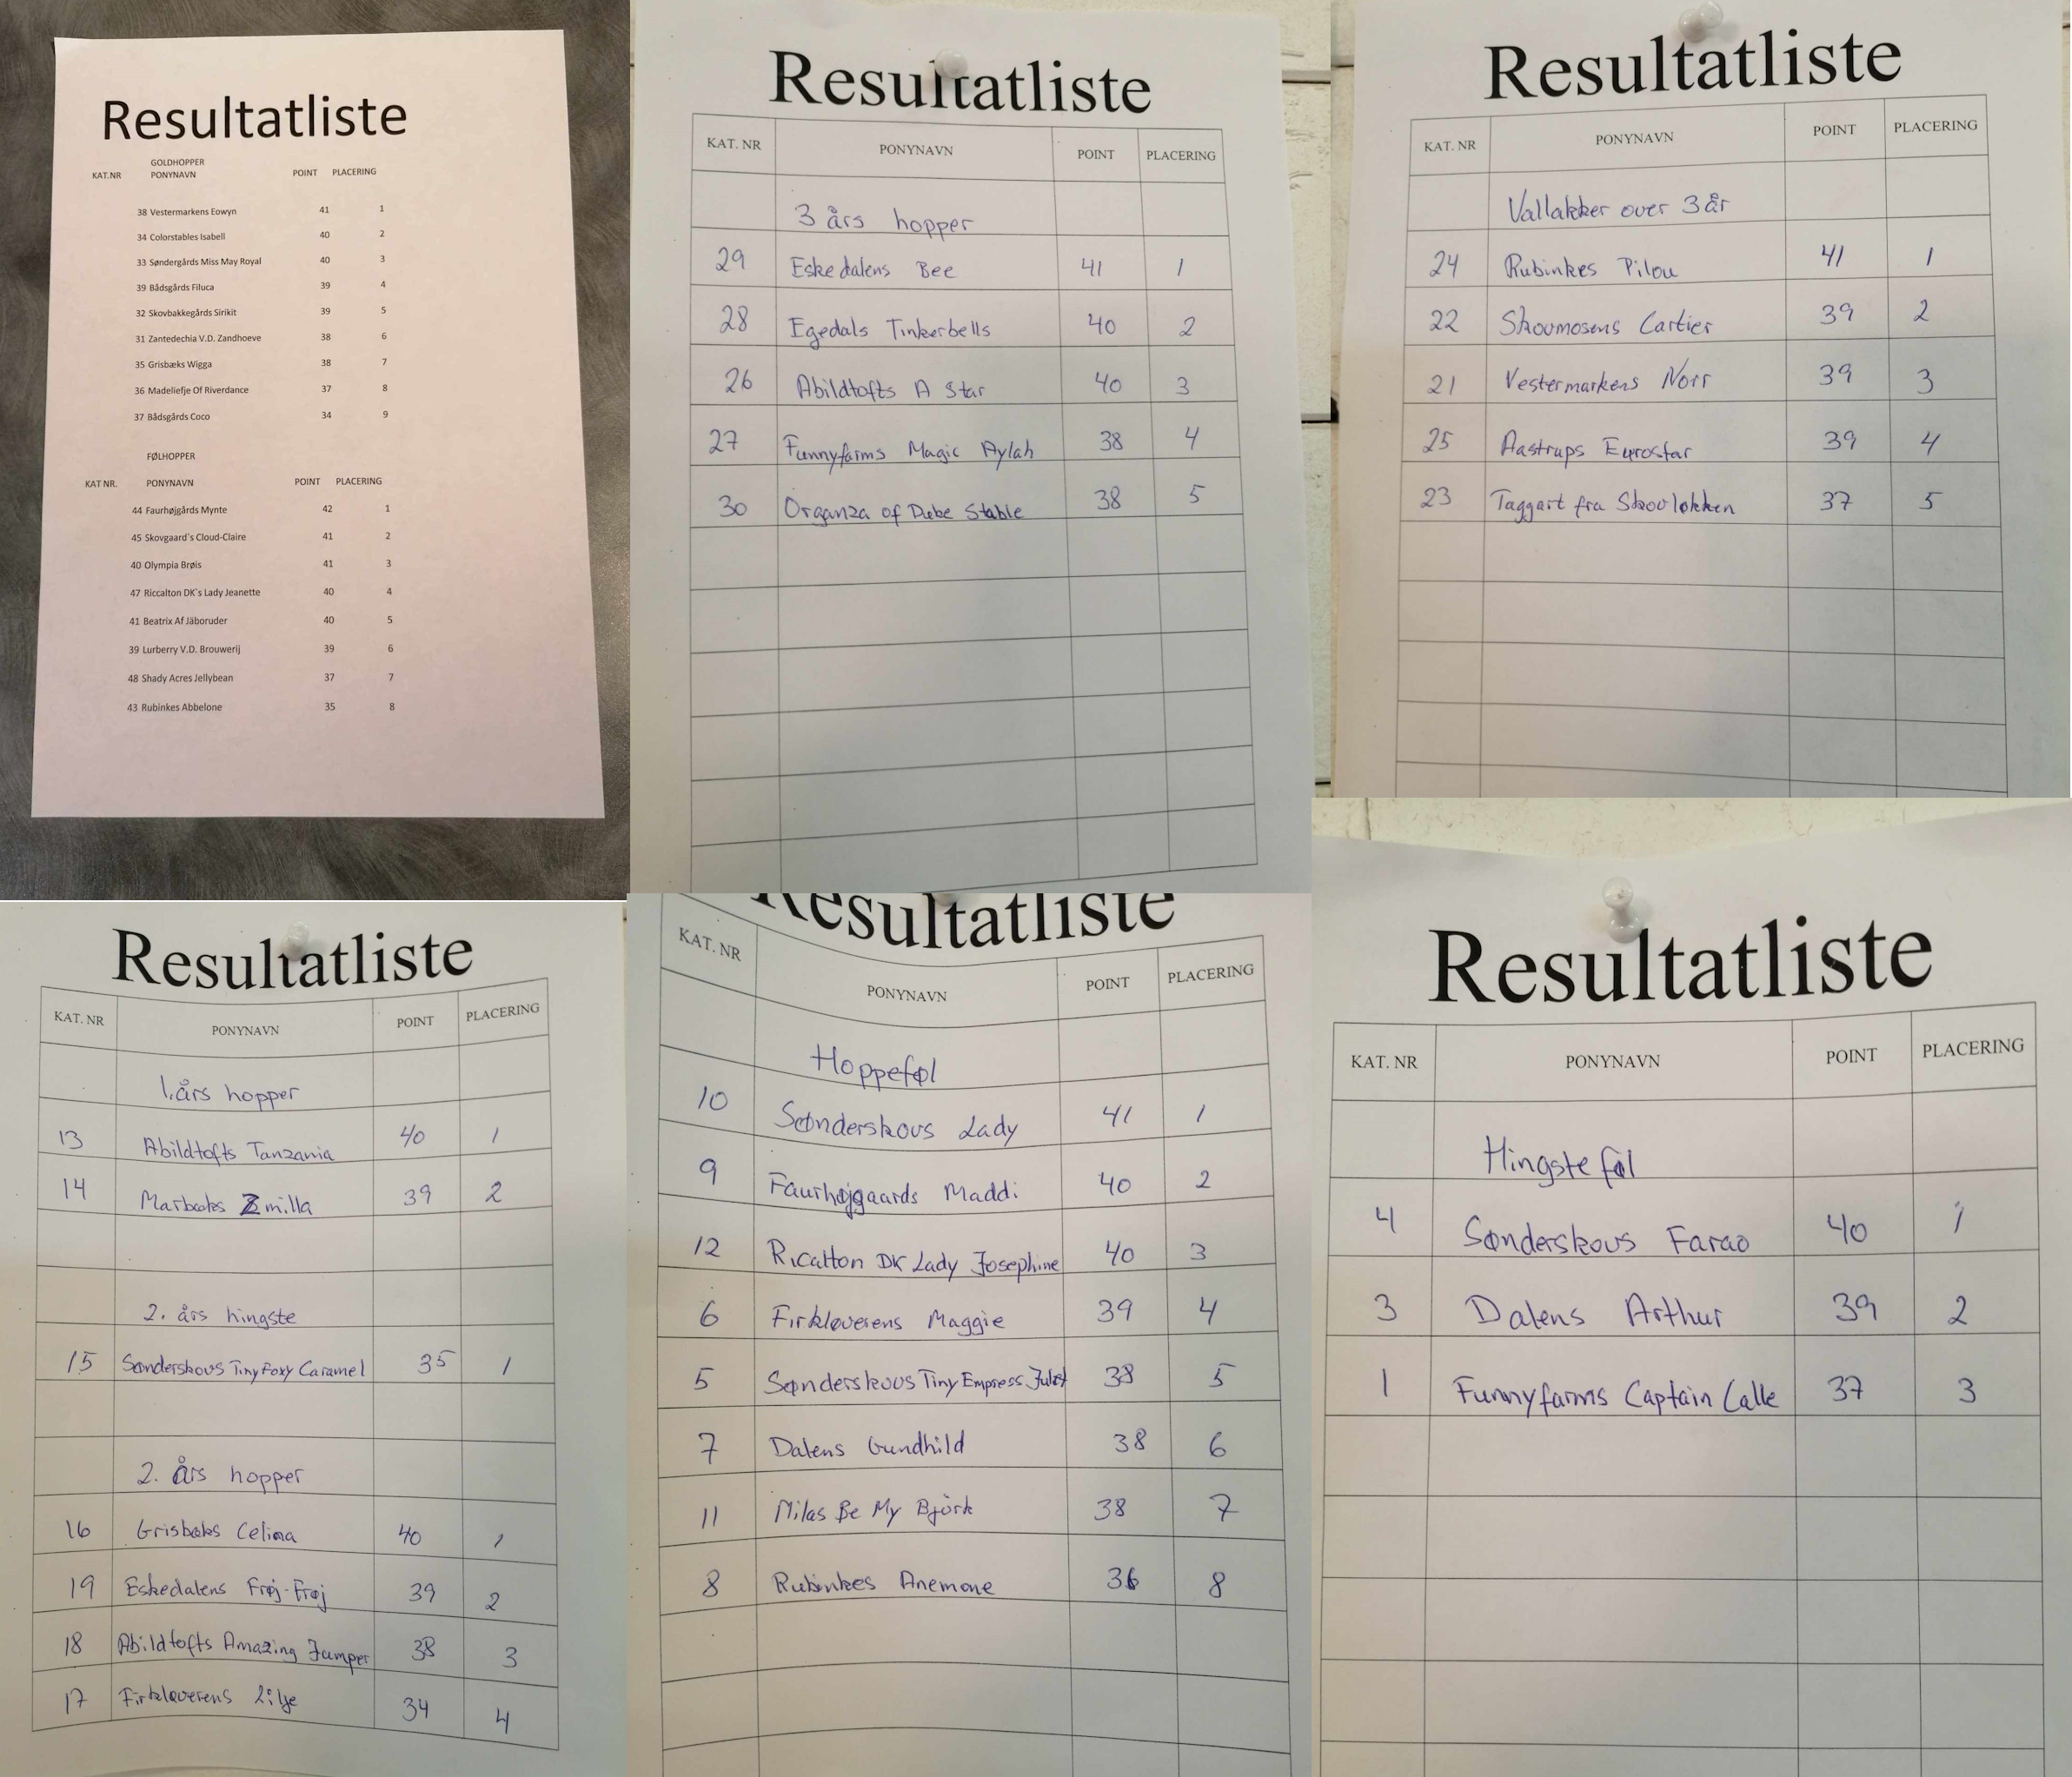 Resultatliste
GOLDHOPPER
KAT.NR PONYNAVN POINT PLACERING
38 Vestermarkens Eowyn 41 1
34 Colorstables Isabell 40 2
33 Søndergårds Miss May Royal 40 3
39 Bådsgårds Filuca 39 4
32 Skovbakkegårds Sirikit 39 5
31 Zantedechia V.D. Zandhoeve 38 6
35 Grisbæks Wigga 38 7
36 Madeliefje Of Riverdance 37 8
37 Bådsgårds Coco 34 9
FØLHOPPER
KAT NR. PONYNAVN POINT PLACERING
44 Faurhøjgårds Mynte 42 1
45 Skovgaard`s Cloud-Claire 41 2
40 Olympia Brøis 41 3
47 Riccalton DK`s Lady Jeanette 40 4
41 Beatrix Af Jäboruder 40 5
39 Lurberry V.D. Brouwerij 39 6
48 Shady Acres Jellybean 37 7
43 Rubinkes Abbelone 35 8
Resultatliste
KAT. NR PONYNAVN POINT PLACERING
3 års hopper
29 Eskedalens Bee 41 1
28 Egedals Tinkerbells 40 2
26 Abildtofts A Star 40 3
27 Funnyfarms Magic Aylah 38 4
30 Organza of Debe Stable 38 5
Resultatliste
KAT. NR PONYNAVN POINT PLACERING
Vallakker over 3 år
24 Rubinkes Pilou 41 1
22 Skovmosens Cartier 39 2
21 Vestermarkens Norr 39 3
25 Aastrups Eurostar 39 4
23 Taggart fra Skovløkken 37 5
Resultatliste
KAT. NR PONYNAVN POINT PLACERING
1.års hopper
13 Abildtofts Tanzania 40 1
14 Marbæks Zmilla 39 2
2. års hingste
15 Sønderskovs Tiny Foxy Caramel 35 1
2. års hopper
16 Grisbæks Celina 40 1
19 Eskedalens Frøj-Frøj 39 2
18 Abildtofts Amazing Jumper 38 3
17 Firkløverens Lilje 34 4
Resultatliste
KAT. NR PONYNAVN POINT PLACERING
Hoppeføl
10 Sønderskovs Lady 41 1
9 Faurhøjgaards Maddi 40 2
12 Ricalton DK Lady Josephine 40 3
6 Firkløverens Maggie 39 4
5 Sønderskovs Tiny Empress 38 5
7 Dalens Gundhild 38 6
11 Milas Be My Björk 38 7
8 Rubinkes Anemone 36 8
Resultatliste
KAT. NR PONYNAVN POINT PLACERING
Hingsteføl
4 Sønderskovs Farao 40 1
3 Dalens Arthur 39 2
1 Funnyfarms Captain Calle 37 3